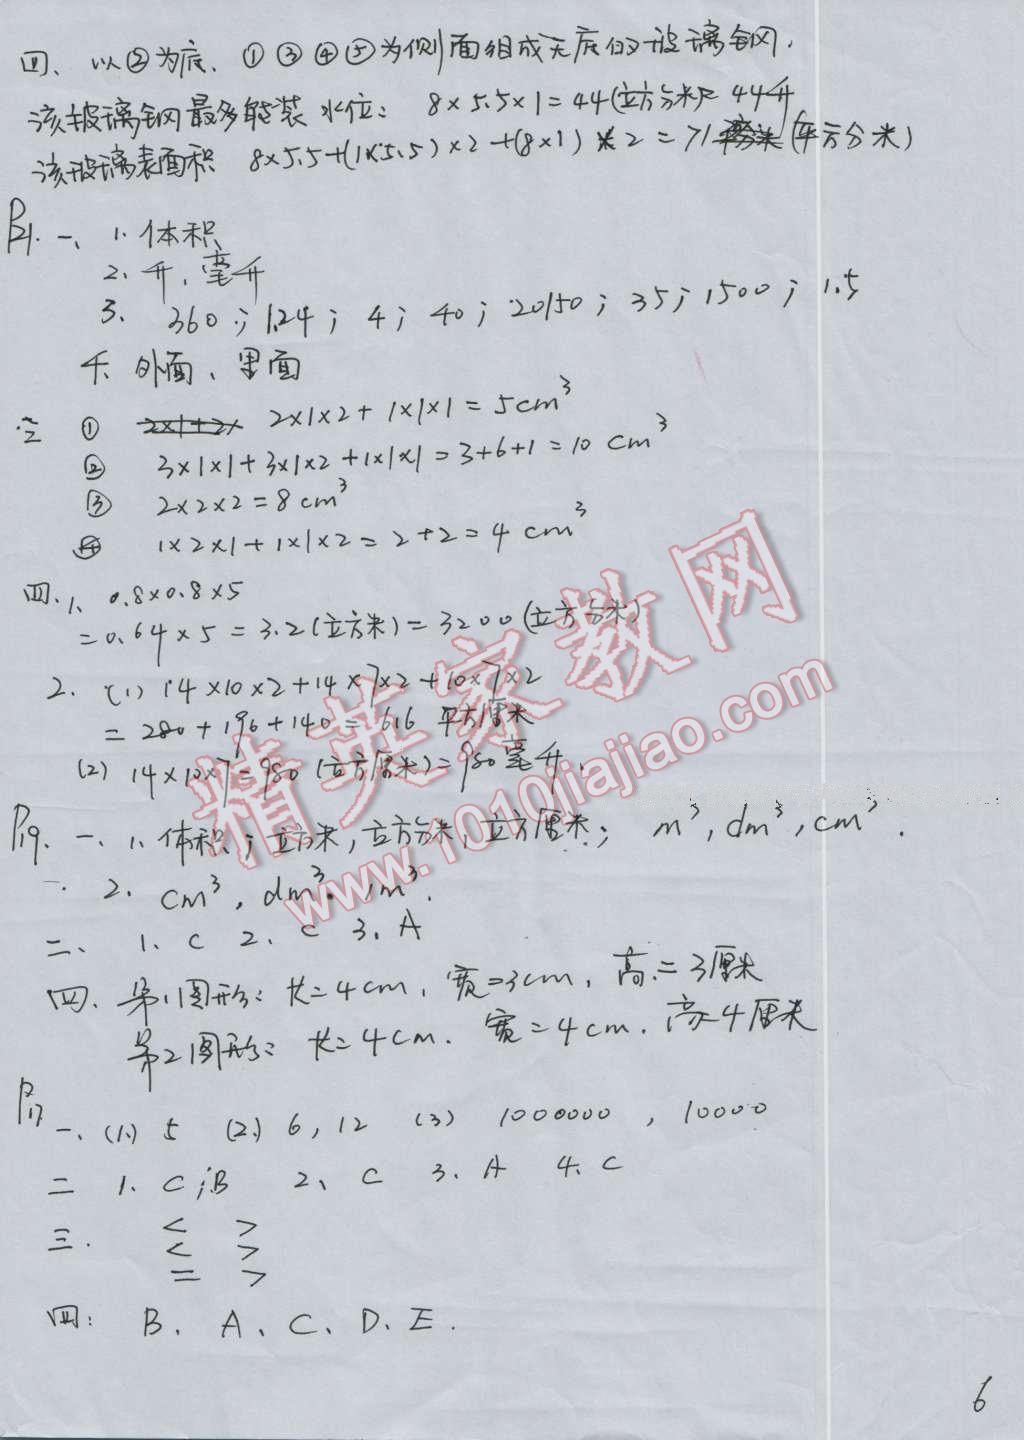 四、以②为底、①③④⑤为侧面组成无底的玻璃钢.
该玻璃钢最多能装水位: 8×5.5×1=44(立方分米) 44升
该玻璃表面积 8×5.5+(1×5.5)×2+(8×1)×2=71 (平方分米)
P21. 一、1. 体积
2. 升、毫升
3. 360; 1.24; 4; 40; 20150; 35; 1500; 1.5
4. 外面、里面
三 ① 2×1+2× 2×1×2+1×1×1=5cm³
② 3×1×1+3×1×2+1×1×1=3+6+1=10 cm³
③ 2×2×2=8cm³
④ 1×2×1+1×1×2=2+2=4 cm³
四.1、0.8×0.8×5
=0.64×5=3.2(立方米)=3200(立方分米)
2. (1) 14×10×2+14×7×2+10×7×2
=280+196+140=616 平方厘米
(2) 14×10×7=980(立方厘米)=980毫升.
P19. 一、1. 体积; 立方米, 立方分米, 立方厘米; m³, dm³, cm³.
2. cm³, dm³. m³.
二、1. C 2. C 3. A
四. 第1图形: 长=4cm, 宽=3cm, 高=3厘米
第2图形: 长=4cm. 宽=4cm. 高=4厘米
P17
一、(1.) 5 (2.) 6, 12 (3) 1000000, 10000
二 1. C;B 2、C 3. A 4. C
三. < >
< >
= >
四: B、A、C、D、E.
精英家教网
www.1010jiajiao.com
6